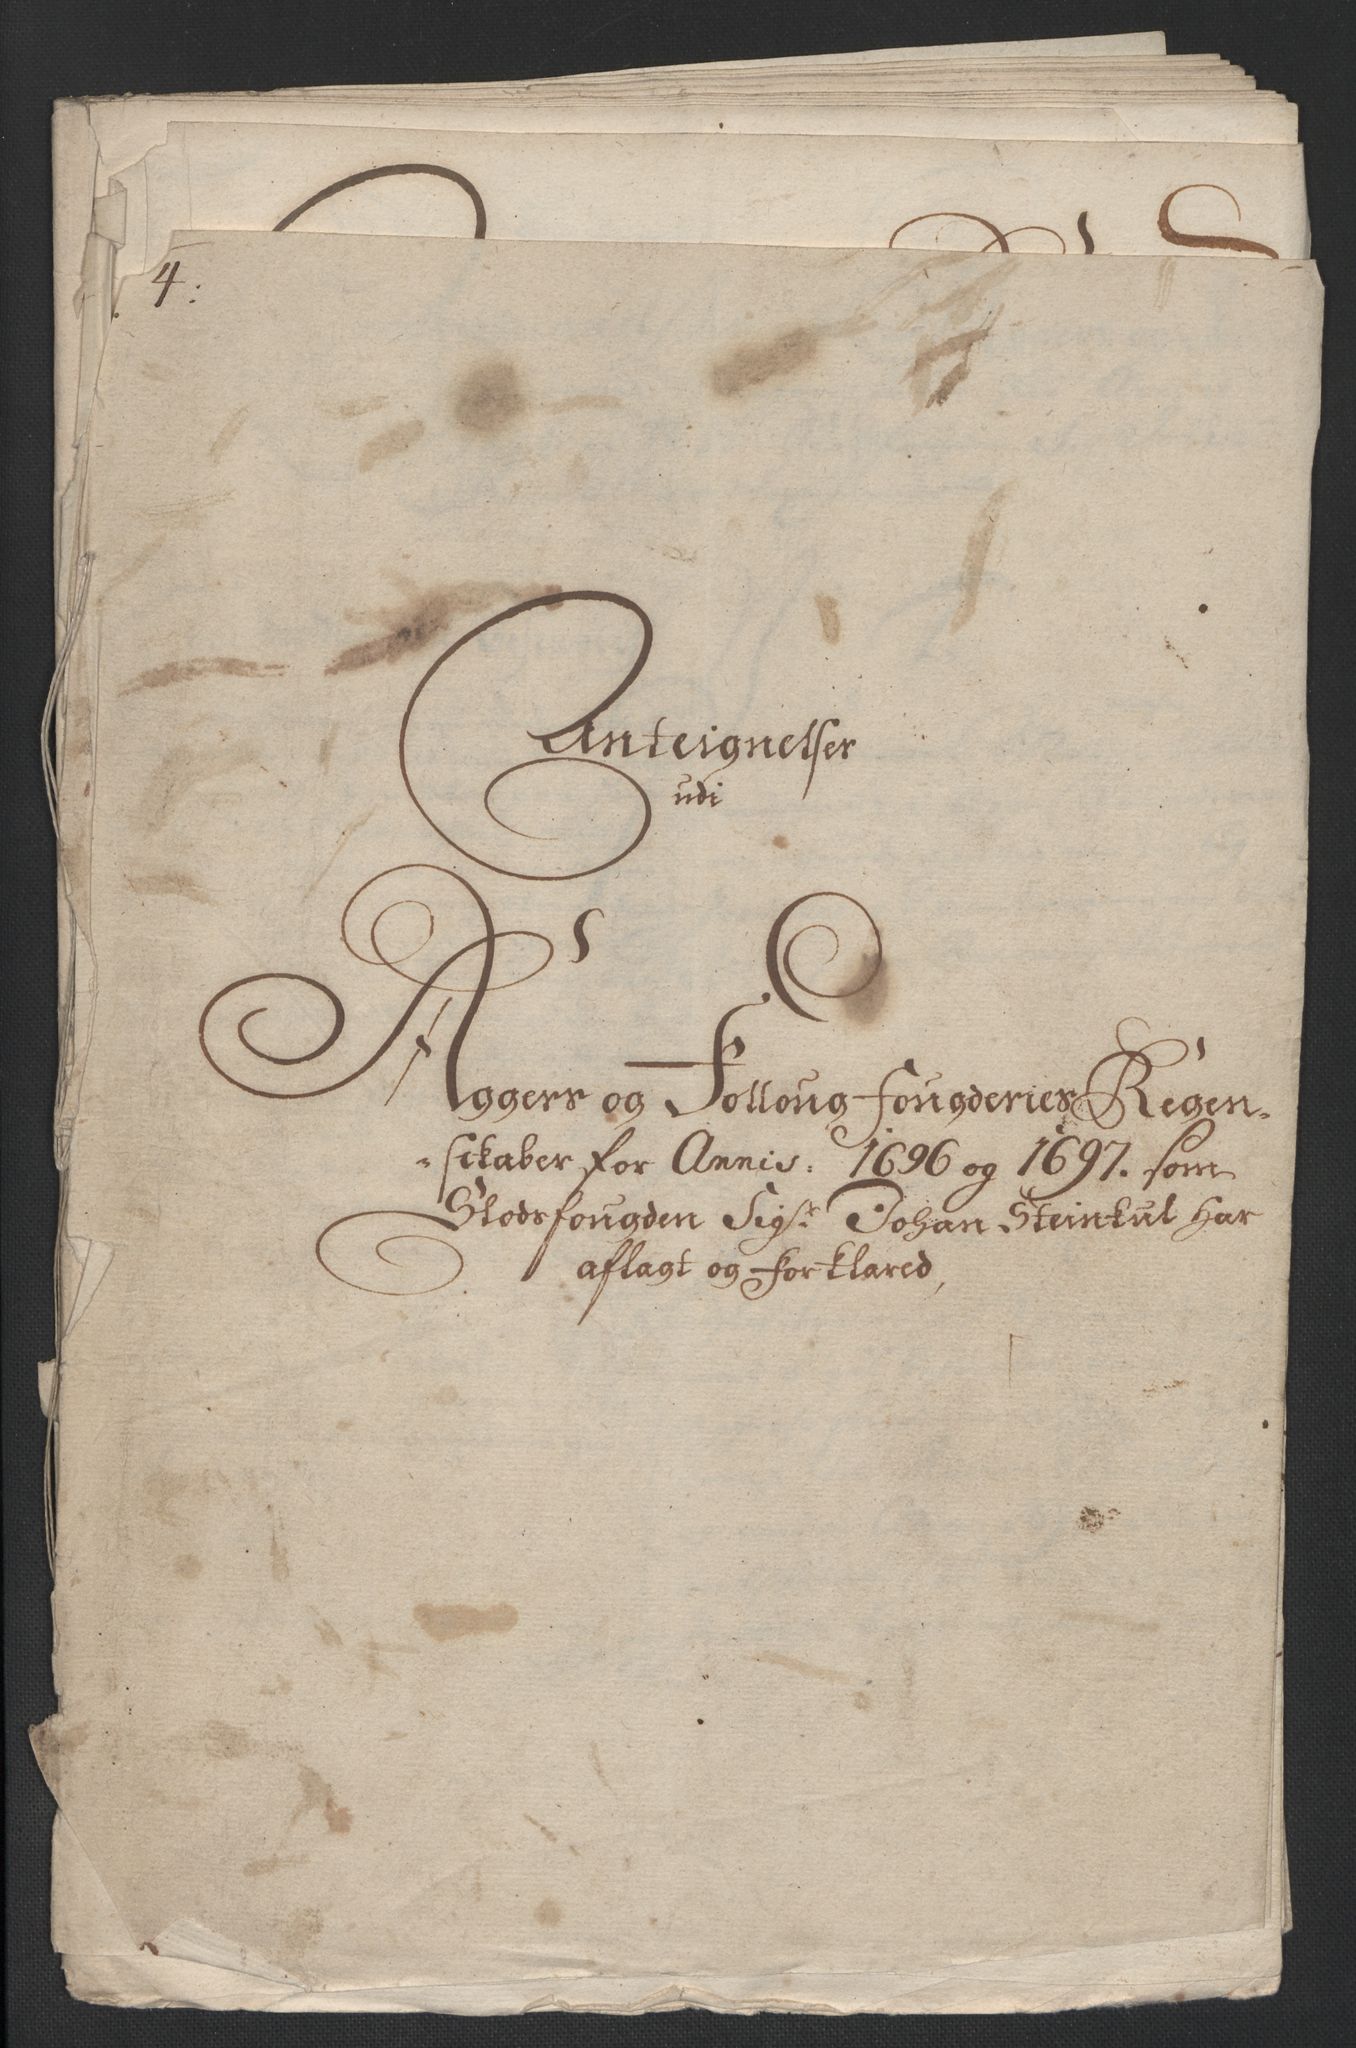 4:
Anteignelser
udi
Aggers og Folloug fougderies Regen-
-skaber for Annis. 1696 og 1697. som
Slodsfougden Sigr. Johan Steinkul har
aflagt og forklared,